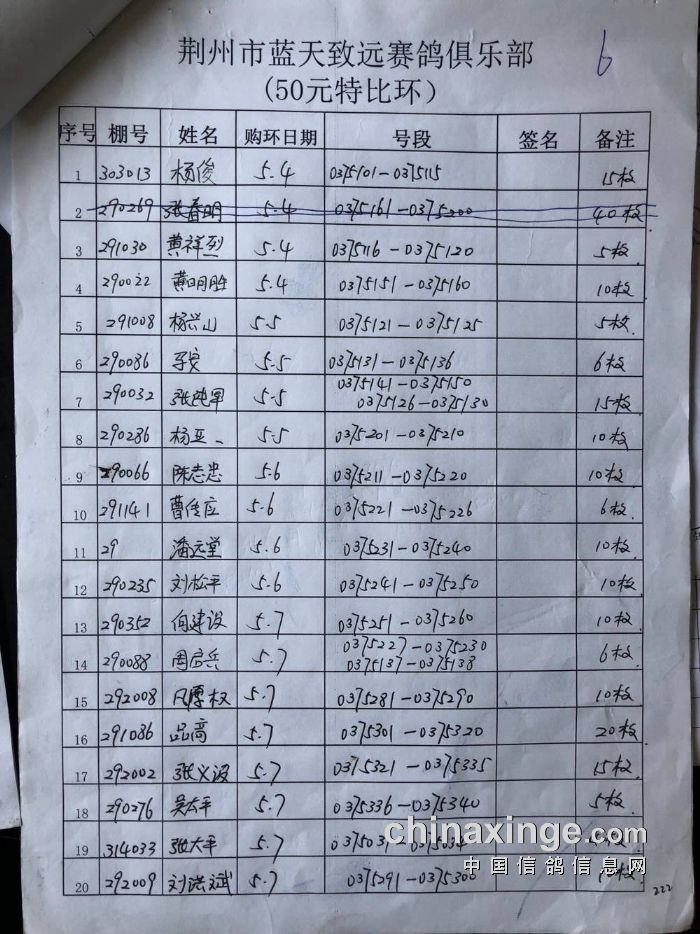 荆州市蓝天致远赛鸽俱乐部
6
(50元特比环)
序号 棚号 姓名 购环日期 号段 签名 备注
1 303013 杨俊 5.4 0375101-0375115 15枚
2 290269 张春明 5.4 0375161-0375200 40枚
3 291030 黄祥烈 5.4 0375116-0375120 5枚
4 290022 黄明胜 5.4 0375151-0375160 10枚
5 291008 杨兴山 5.5 0375121-0375125 5枚
6 290086 5.5 0375131-0375136 6枚
0375141-0375150
7 290032 张纯军 5.5 0375126-0375130 15枚
8 290286 杨亚一 5.5 0375201-0375210 10枚
9 290066 陈志忠 5.6 0375211-0375220 10枚
10 291141 曹传应 5.6 0375221-0375226 6枚
11 29 潘远堂 5.6 0375231-0375240 10枚
12 290235 刘松平 5.6 0375241-0375250 10枚
13 290352 向建设 5.7 0375251-0375260 10枚
0375227-0375230
14 290088 周启兵 5.7 0375137-0375138 6枚
15 292008 5.7 0375281-0375290 10枚
16 291086 品高 5.7 0375301-0375320 20枚
17 292002 张义设 5.7 0375321-0375335 15枚
18 290276 吴太平 5.7 0375336-0375340 5枚
19 314033 张大平 5.7 0375031-
chinaxinge.com
中国信鸽信息网
20 292009 刘洪斌 5.7 0375291-0375300
222